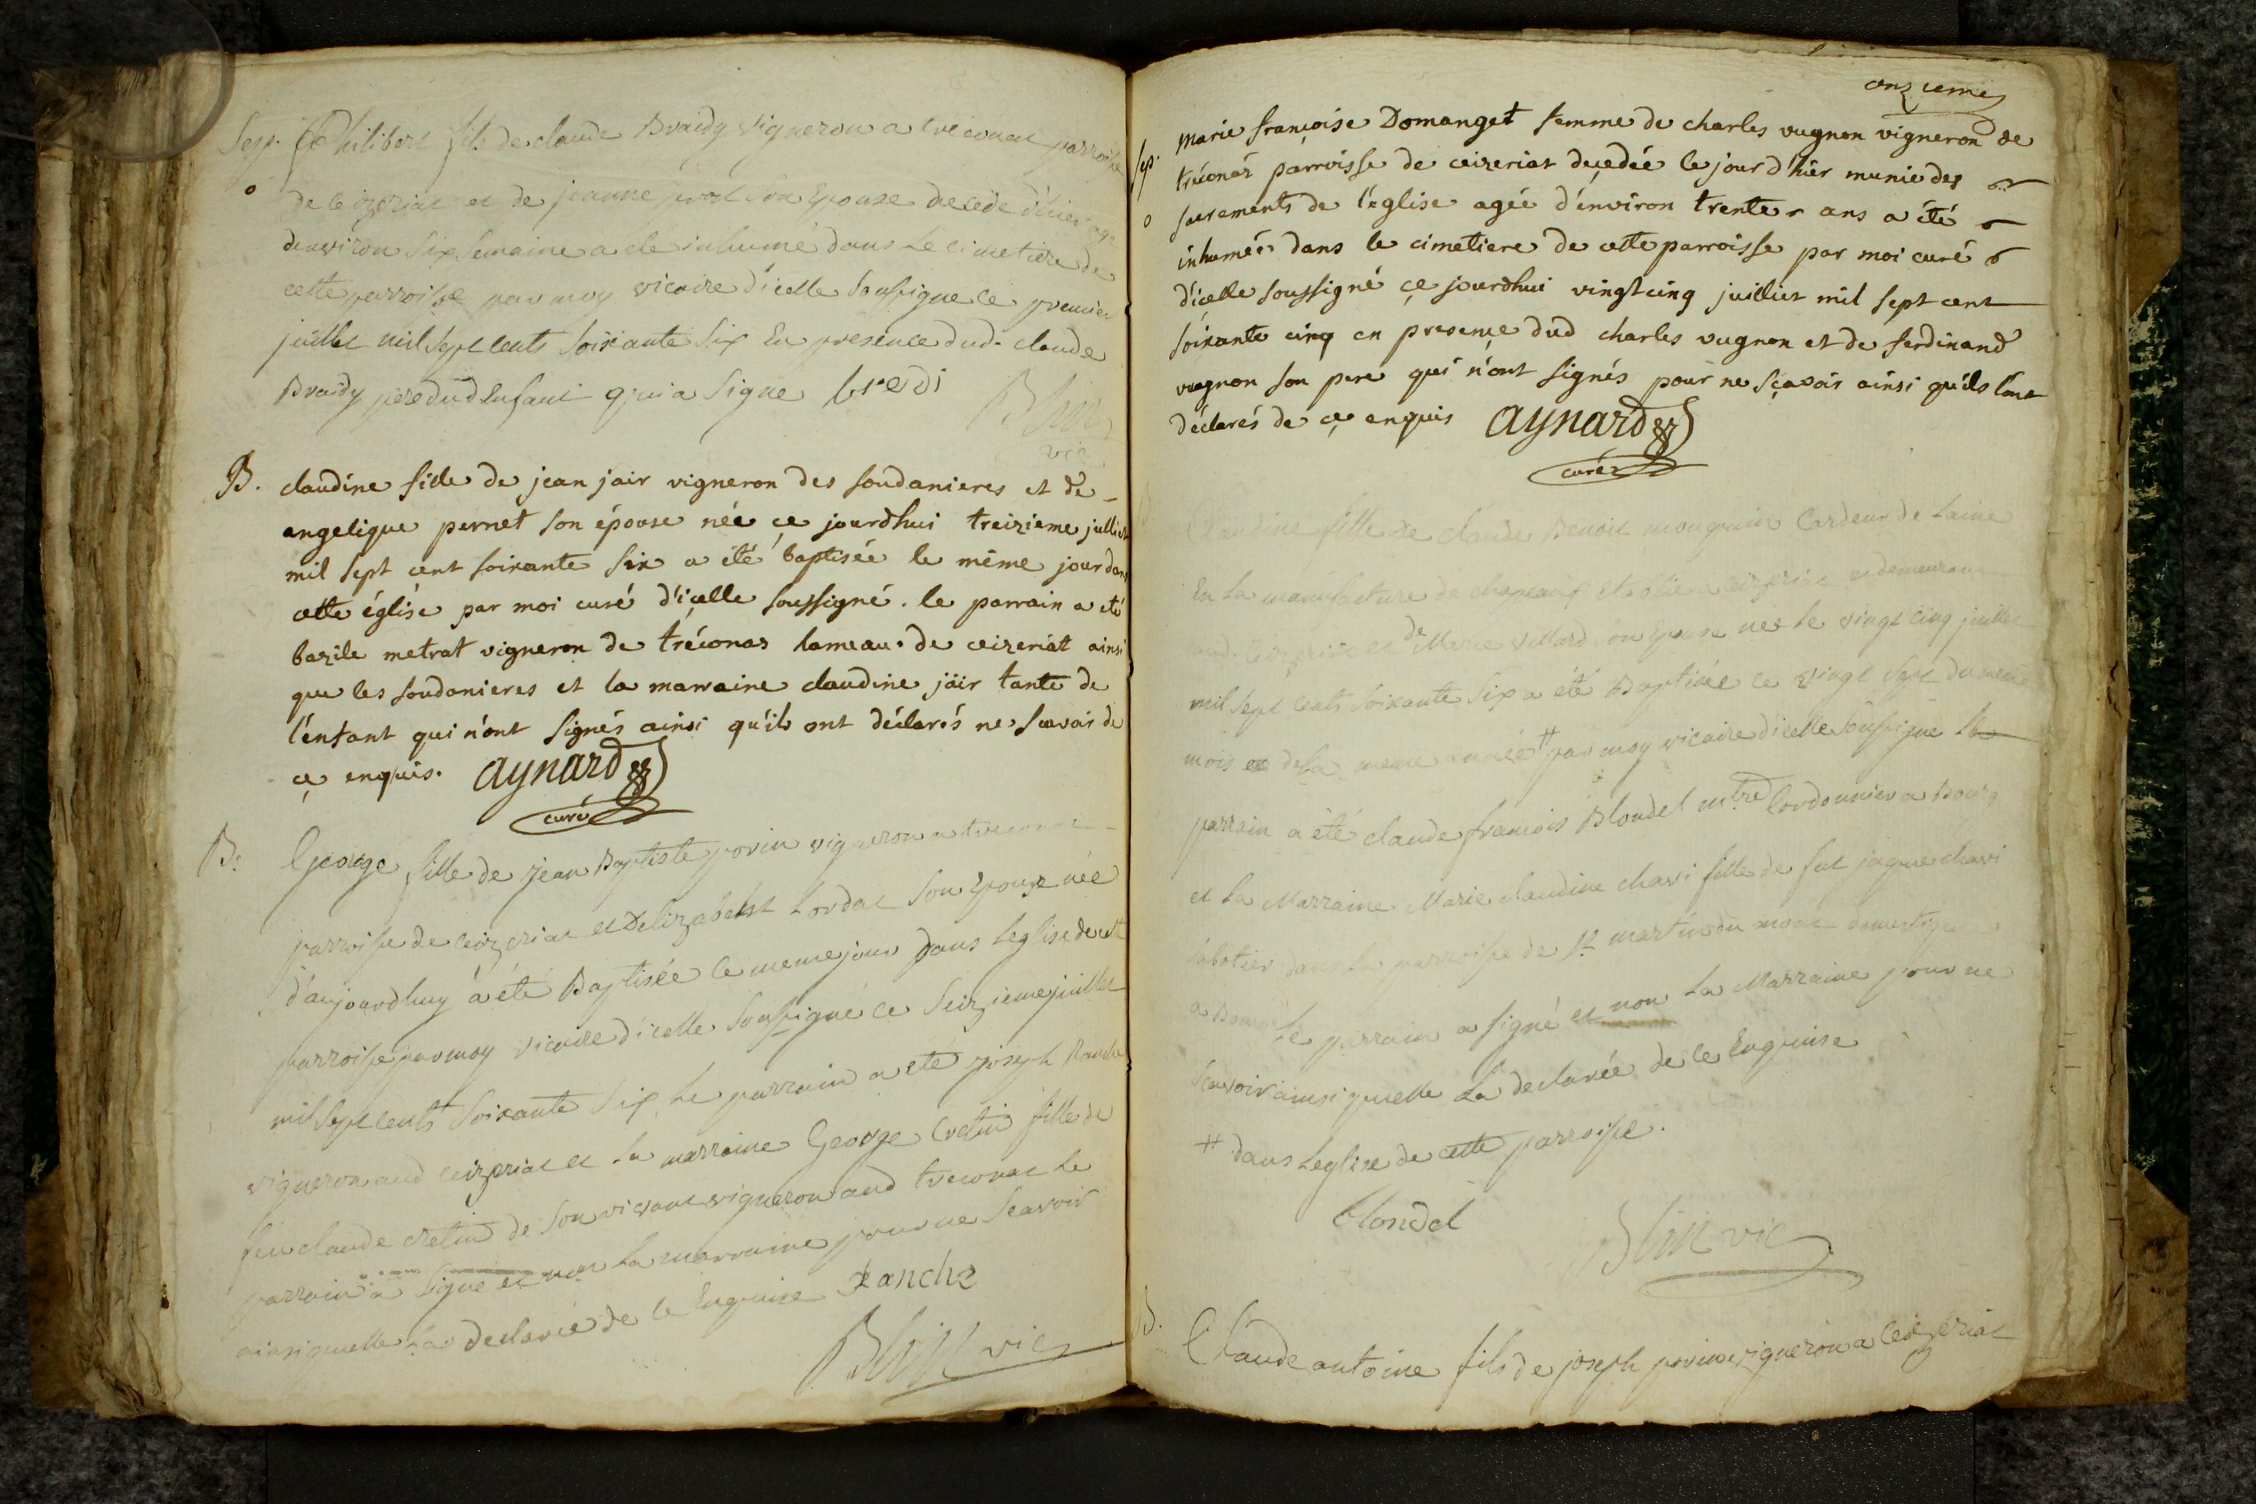 Sep. Philibert fils de claude Braidy vigneron a treconat parroisse
de ceizeriat et de jeanne son Epouse decedé d'hier agé
denviron six semaine a eté inhumé dans le cimetiere de
cette parroise par moy vicaire d'icelle Soussigne ce premier
juillet mil sept cents soixante six En presence dud. claude
Braidy pere dud Enfant qui a signe bredi
vic
B. claudine fille de jean jair vigneron des soudanieres et de
angelique pernet son épouse née ce jourdhui treizieme julliet
mil sept cent soixante six a été baptisée le même jour dans
cette église par moi curé d'icelle soussigné. le parrain a eté
bazile metrat vigneron de tréconas hameau de ceizeriat ainsi
que les soudanieres et la marraine claudine jair tante de
l'enfant qui n'ont signés ainsi qu'ils ont déclarés ne scavoir de
ce enquis. aynard
curé
B. George fille de Jean Baptiste povin vigneron a treconat
parroise de ceizeriat et Delizabeht Lordat son Epouse née
d'aujourdhuy a été Baptisée le meme jour dans Leglise de cette
parroise par moy vicaire d'icelle Soussigné ce Seizieme juillet
mil sept cents soixante six Le parrain a eté joseph Ranche
vigneron aud ceizeriat et la marraine George Cretin fille de
feu claude cretin de son vivant vigneron aud treconat Le
parrain a signé et non la marraine pour ne Scavoir
ainsi quelle La declarée de ce Enquise Ranche
vic
onzieme
Sep. Marie françoise Domanget femme de charles vugnon vigneron de
tréconas parroisse de ceizeriat decedée le jour d'hier munie des
sacrements de l'église agée d'environ trente ans a été
inhumée dans le cimetiere de cette parroisse par moi curé
d'icelle soussigné ce jourdhui vingt cinq juilliet mil sept cent
soixante cinq en presence dud charles vugnon et de ferdinand
vugnon son pere qui n'ont signés pour ne sçavoir ainsi qu'ils l'ont
déclarés de ce enquis aynard
curé
Claudine fille de claude Benoit monguin Cardeur de Laine
En La manufacture de chapeaux Etablie a ceizeriat et demeurant
aud. ceizeriat et de Marie villard son Epouse née le vingt cinq juillet
mil sept cents soixante six a été Baptisée ce vingt sept du meme
mois et de la meme année # par moy vicaire dicelle Soussigne Le
parrain a été claude françois Blondel mtre Cordonnier a Bourg
et La Marraine Marie claudine chavi fille de fut jaque chavi
sabotier dans la parroise de st martin du mont domestique
a Bourg Le parrain a signé et non La Marraine pour ne
scavoir ainsi quelle La declarée de ce Enquise
# dans Leglise de cette parroise.
blondel
vic
B. Claude antoine fils de joseph povin vigneron a Ceizeriat